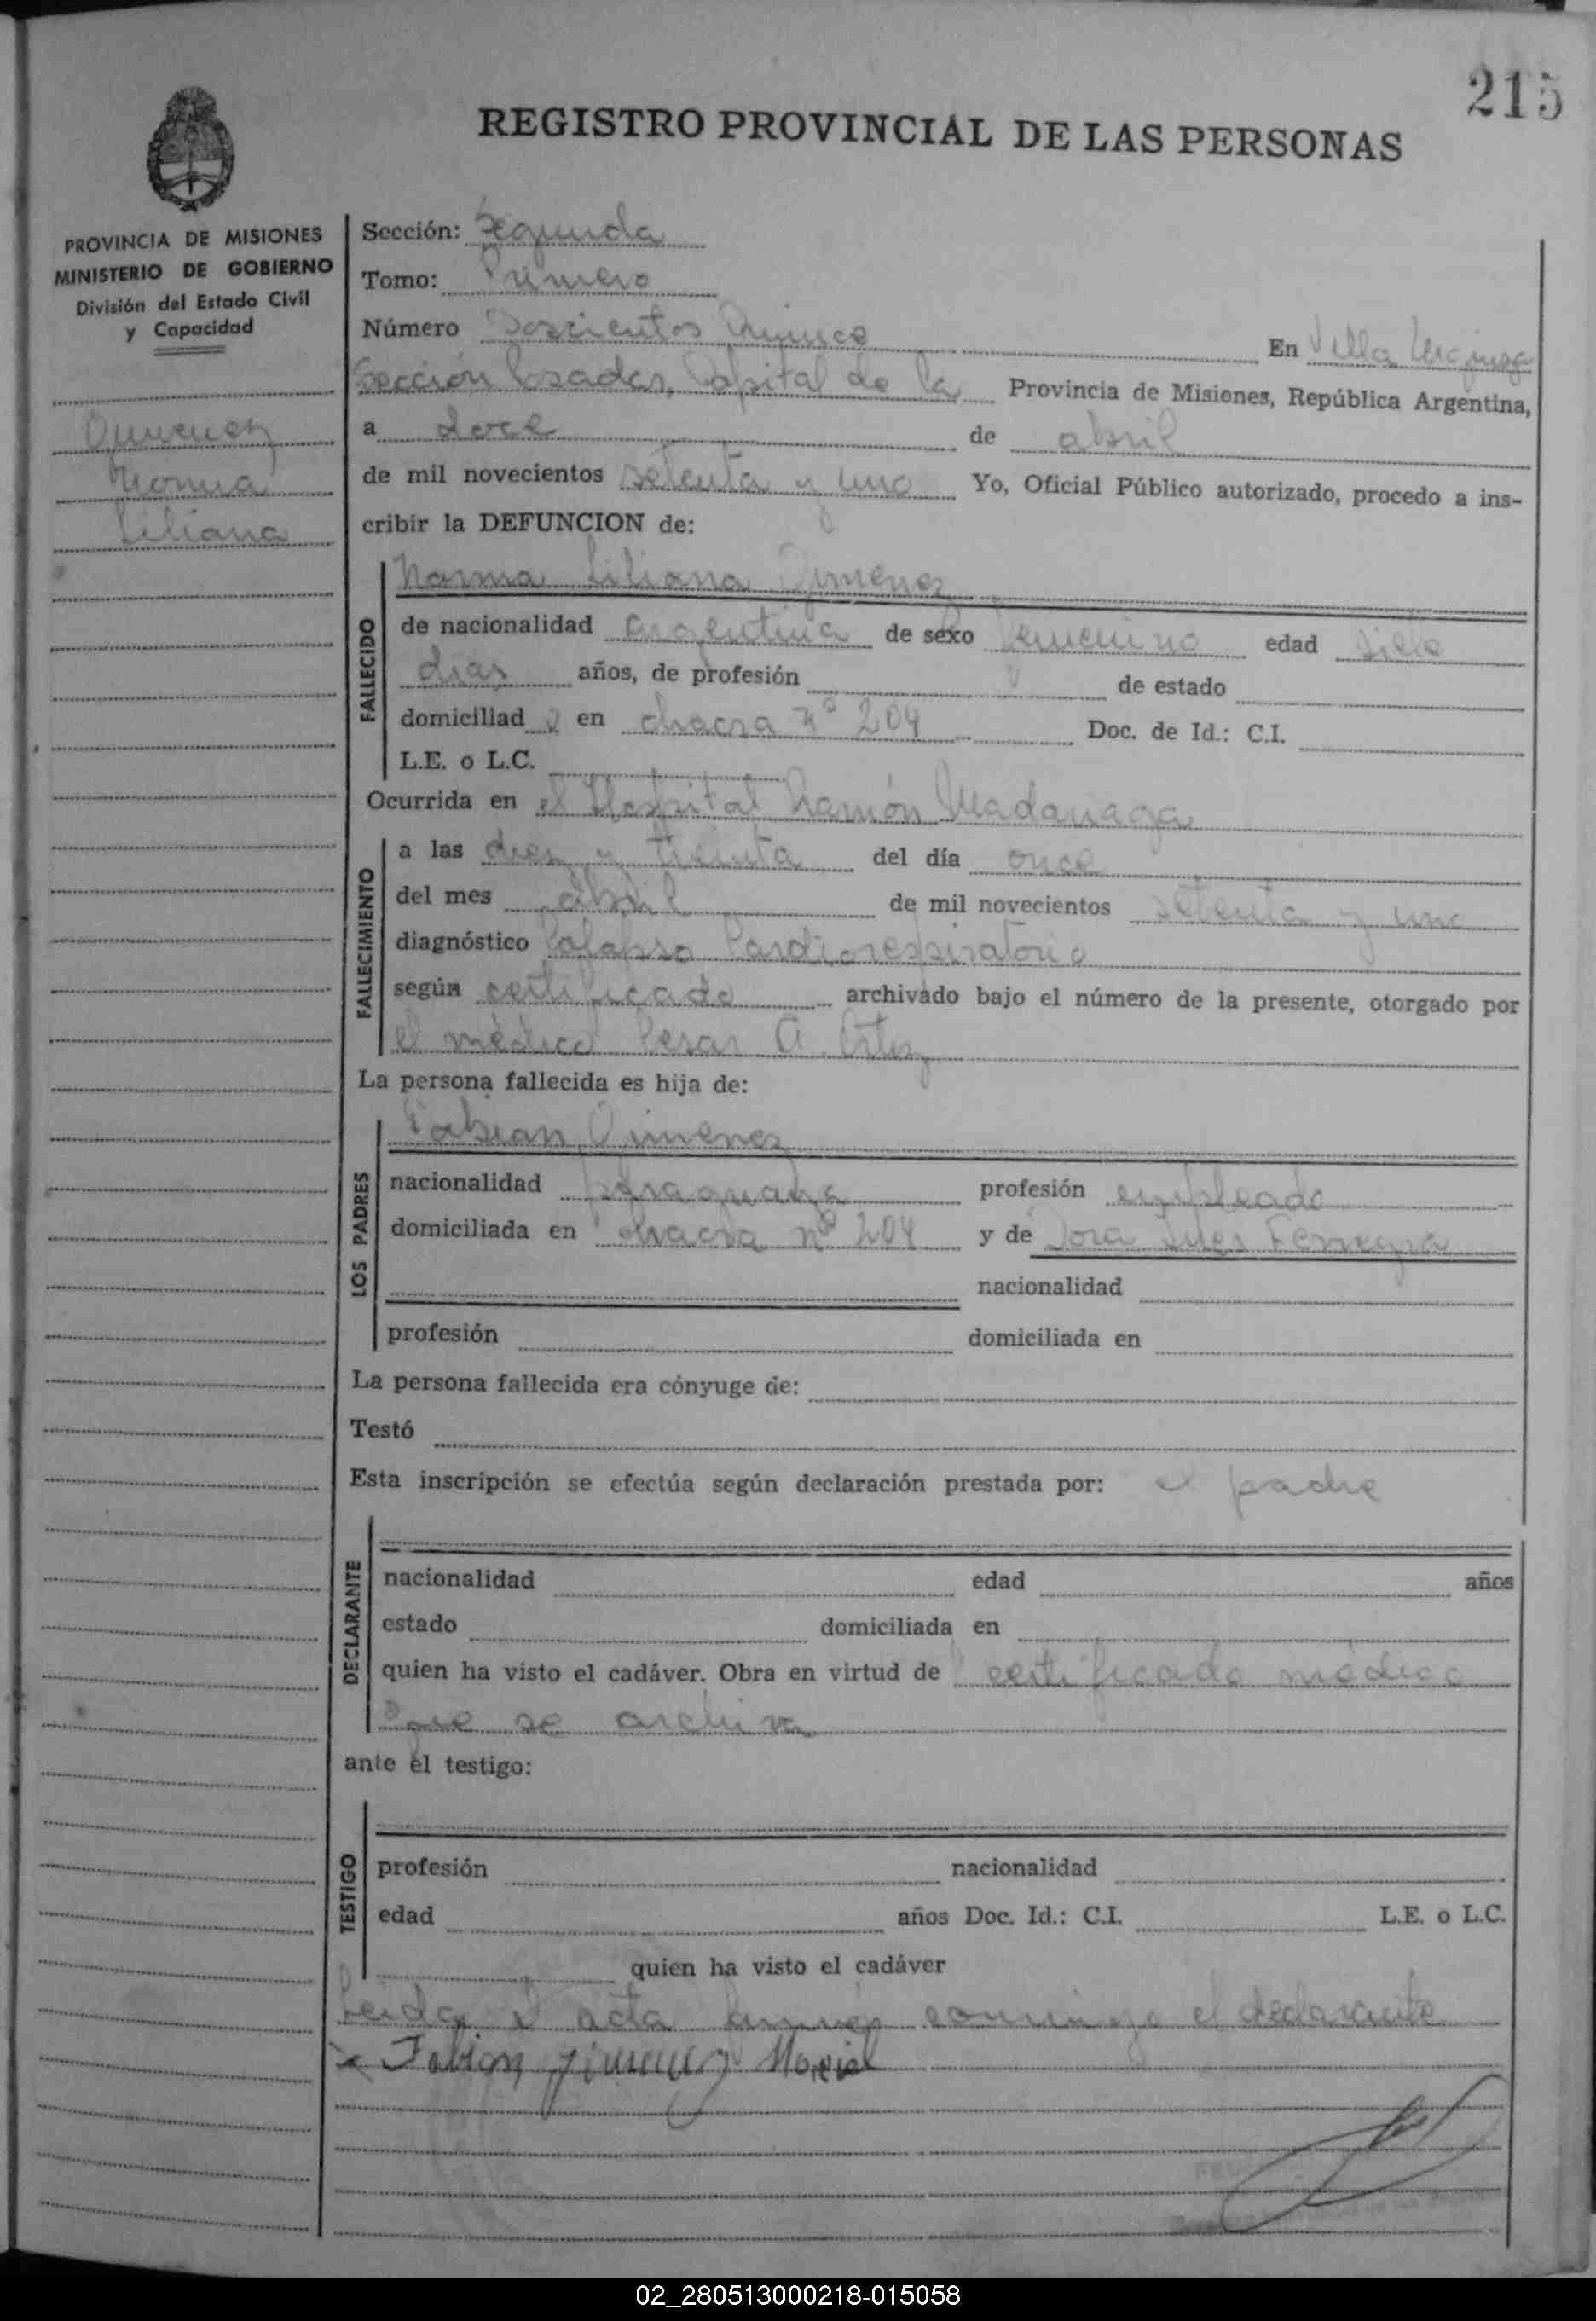 215
REGISTRO PROVINCIAL DE LAS PERSONAS
PROVINCIA DE MISIONES
MINISTERIO DE GOBIERNO
División del Estado Civil
y Capacidad
Norma
Liliana
Sección: Segunda
Tomo: Primero
Número Doscientos Quince En Villa Urquiza
Sección Posadas, Capital de la Provincia de Misiones, República Argentina,
a doce de abril
de mil novecientos setenta y uno Yo, Oficial Público autorizado, procedo a ins-
cribir la DEFUNCION de:
FALLECIDO
Norma Liliana Jimenez
de nacionalidad argentina de sexo femenino edad siete
dias años, de profesión de estado
domiciliad a en chacra nº 204 Doc. de Id.: C.I.
L.E. o L.C.
Ocurrida en el Hospital Ramón Madariaga
FALLECIMIENTO
a las diez y treinta del día once
del mes abril de mil novecientos setenta y uno
diagnóstico Colapso Cardiorespiratorio
según certificado archivado bajo el número de la presente, otorgado por
el médico Cesar A. Ortiz
La persona fallecida es hija de:
LOS PADRES
Fabian Jimenez
nacionalidad paraguaya profesión empleado
domiciliada en chacra nº 204 y de Dora Ferreyra
nacionalidad
profesión domiciliada en
La persona fallecida era cónyuge de:
Testó
Esta inscripción se efectúa según declaración prestada por: el padre
DECLARANTE
nacionalidad edad años
estado domiciliada en
quien ha visto el cadáver. Obra en virtud de certificado médico
que se archiva
ante el testigo:
TESTIGO
profesión nacionalidad
edad años Doc. Id.: C.I. L.E. o L.C.
quien ha visto el cadáver
Leida el acta conmigo el declarante
x Fabian Jimenez
02_280513000218-015058